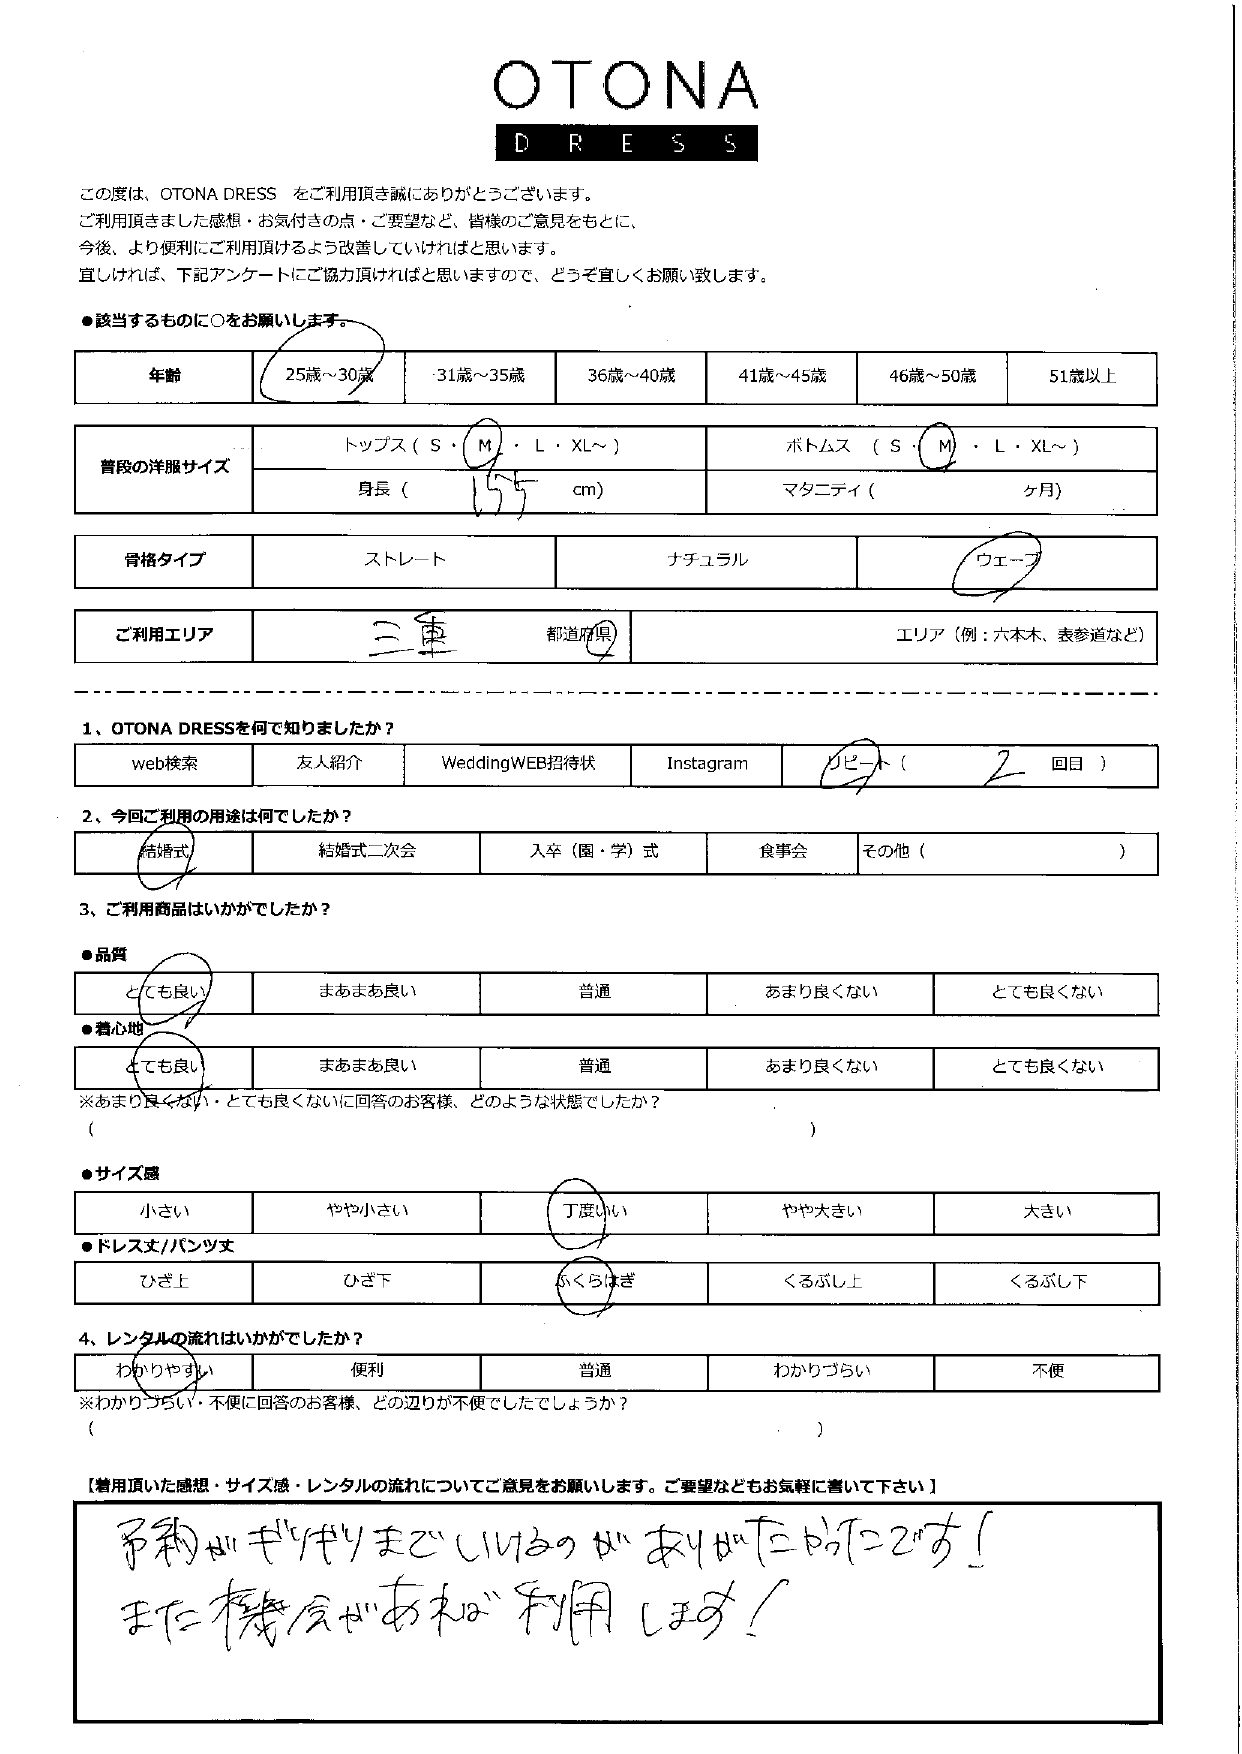 OTONA
DRESS
この度は、OTONA DRESS　をご利用頂き誠にありがとうございます。
ご利用頂きました感想・お気付きの点・ご要望など、皆様のご意見をもとに、
今後、より便利にご利用頂けるよう改善していければと思います。
宜しければ、下記アンケートにご協力頂ければと思いますので、どうぞ宜しくお願い致します。
●該当するものに○をお願いします。
年齢 25歳～30歳 31歳～35歳 36歳～40歳 41歳～45歳 46歳～50歳 51歳以上
普段の洋服サイズ トップス ( S ・ M ・ L ・ XL～ ) ボトムス ( S ・ M ・ L ・ XL～ )
身長 ( 155 cm) マタニティ ( ヶ月)
骨格タイプ ストレート ナチュラル ウェーブ
ご利用エリア 三重 都道府県 エリア（例：六本木、表参道など）
1、OTONA DRESSを何で知りましたか？
web検索 友人紹介 WeddingWEB招待状 Instagram リピート ( 2 回目 )
2、今回ご利用の用途は何でしたか？
結婚式 結婚式二次会 入卒（園・学）式 食事会 その他 ( )
3、ご利用商品はいかがでしたか？
●品質
とても良い まあまあ良い 普通 あまり良くない とても良くない
●着心地
とても良い まあまあ良い 普通 あまり良くない とても良くない
※あまり良くない・とても良くないに回答のお客様、どのような状態でしたか？
( )
●サイズ感
小さい やや小さい 丁度いい やや大きい 大きい
●ドレス丈/パンツ丈
ひざ上 ひざ下 ふくらはぎ くるぶし上 くるぶし下
4、レンタルの流れはいかがでしたか？
わかりやすい 便利 普通 わかりづらい 不便
※わかりづらい・不便に回答のお客様、どの辺りが不便でしたでしょうか？
( )
【着用頂いた感想・サイズ感・レンタルの流れについてご意見をお願いします。ご要望などもお気軽に書いて下さい】
予約がギリギリまでいけるのがありがたかったです！
また機会があれば利用します！